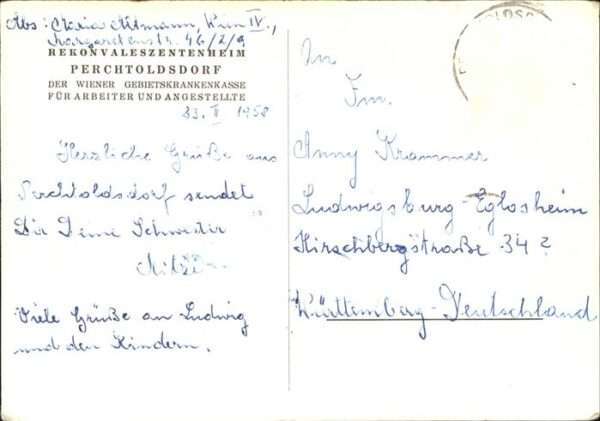 Abs: Maria Altmann, Wien IV.,
Margaretenstr. 46/2/9
REKONVALESZENTENHEIM
PERCHTOLDSDORF
DER WIENER GEBIETSKRANKENKASSE
FÜR ARBEITER UND ANGESTELLTE
1958
Herzliche Grüße aus
Perchtoldsdorf sendet
Dir Deine Schwester
Mitzi
Viele Grüße an Ludwig
und den Kindern.
In
Fm.
Anny Krammer
Ludwigsburg-Eglosheim
Hirschbergstraße 34
Württemberg-Deutschland